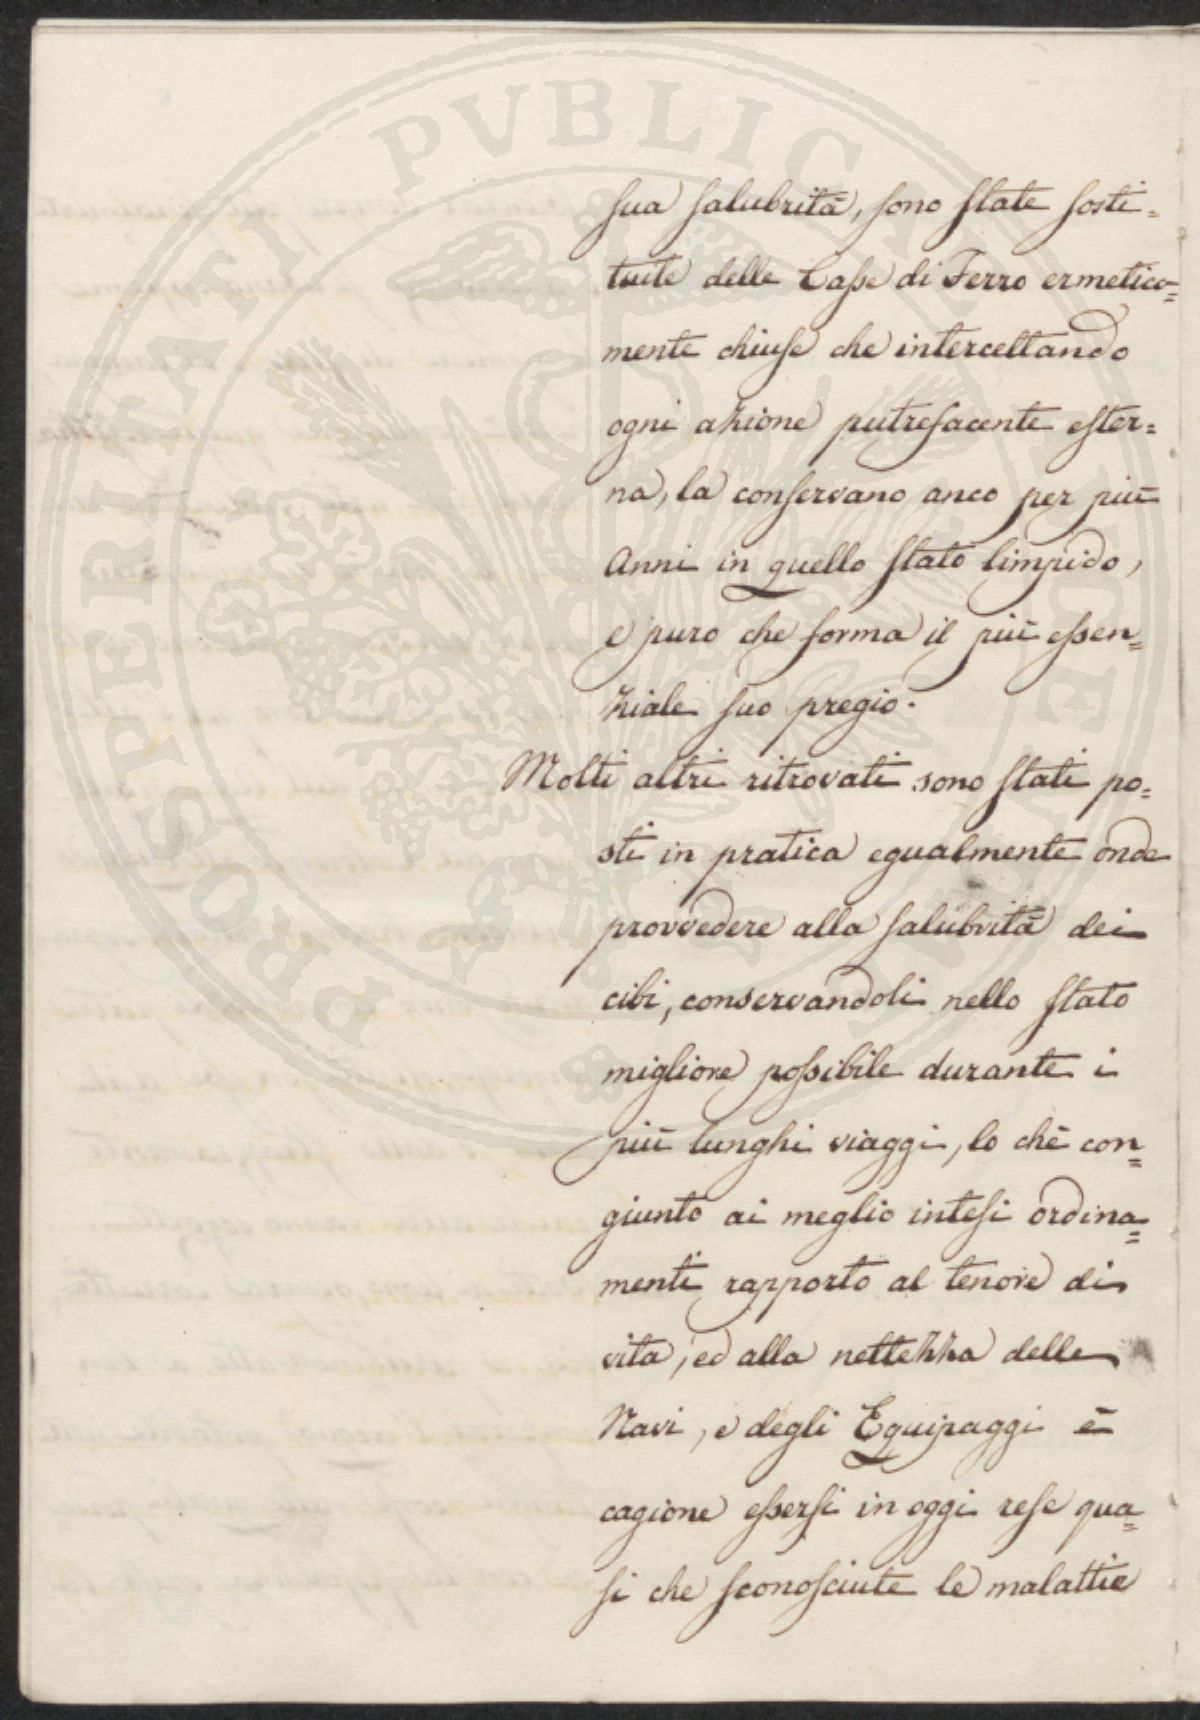 PROSPERITATI PVBLICAE AVGENDAE
sua salubrità, sono state sosti=
tuite delle Casse di Ferro ermetica=
mente chiuse che intercettando
ogni azione putrefacente ester=
na, la conservano anco per più
Anni in quello stato limpido,
e puro che forma il più essen=
ziale suo pregio.
Molti altri ritrovati sono stati po=
sti in pratica egualmente onde
provvedere alla salubrità dei
cibi, conservandoli nello stato
migliore possibile durante i
più lunghi viaggi, lo chè con=
giunto ai meglio intesi ordina=
menti rapporto al tenore di
vita, ed alla nettezza delle
Navi, e degli Equipaggi è
cagione essersi in oggi rese qua=
si che sconosciute le malattie